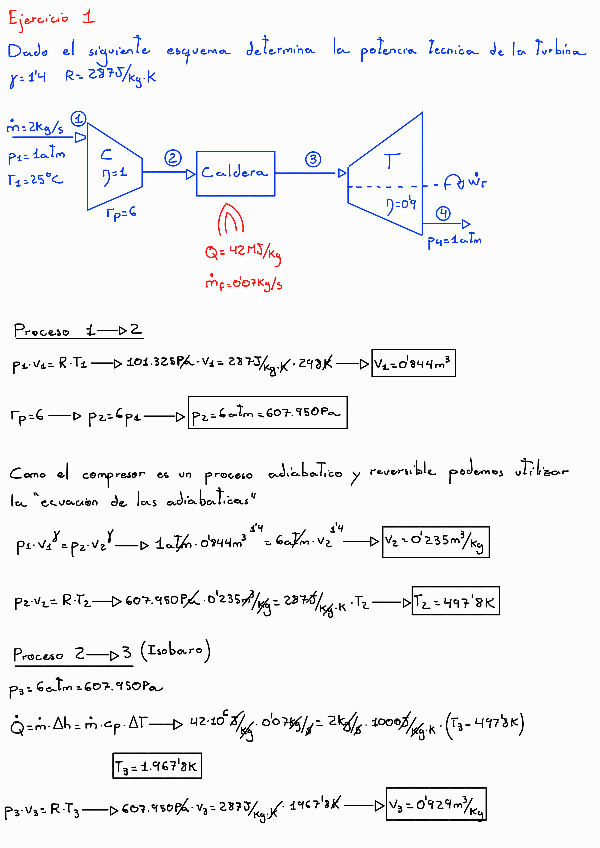 Ejercicio 1
Dado el siguiente esquema determina la potencia tecnica de la turbina
γ=1'4 R=287J/kg·K
ṁ=2kg/s
p1=1atm
T1=25°C
1
C
η=1
rp=6
2
Caldera
Q=42MJ/kg
ṁf=0'07kg/s
3
T
η=0'9
ẇT
4
p4=1atm
Proceso 1→2
p1·v1=R·T1 → 101.325Pa·v1=287J/kg·K·298K → v1=0'844m³
rp=6 → p2=6p1 → p2=6atm=607.950Pa
Como el compresor es un proceso adiabatico y reversible podemos utilizar
la "ecuacion de las adiabaticas"
p1·v1^γ=p2·v2^γ → 1atm·0'844m³^1'4=6atm·v2^1'4 → v2=0'235m³/kg
p2·v2=R·T2 → 607.950Pa·0'235m³/kg=287J/kg·K·T2 → T2=497'8K
Proceso 2→3 (Isobaro)
p3=6atm=607.950Pa
Q̇=ṁ·Δh=ṁ·cp·ΔT → 42·10⁶J/kg·0'07kg/s=2kg/s·1000J/kg·K·(T3-497'8K)
T3=1.967'8K
p3·v3=R·T3 → 607.950Pa·v3=287J/kg·K·1967'8K → v3=0'929m³/kg